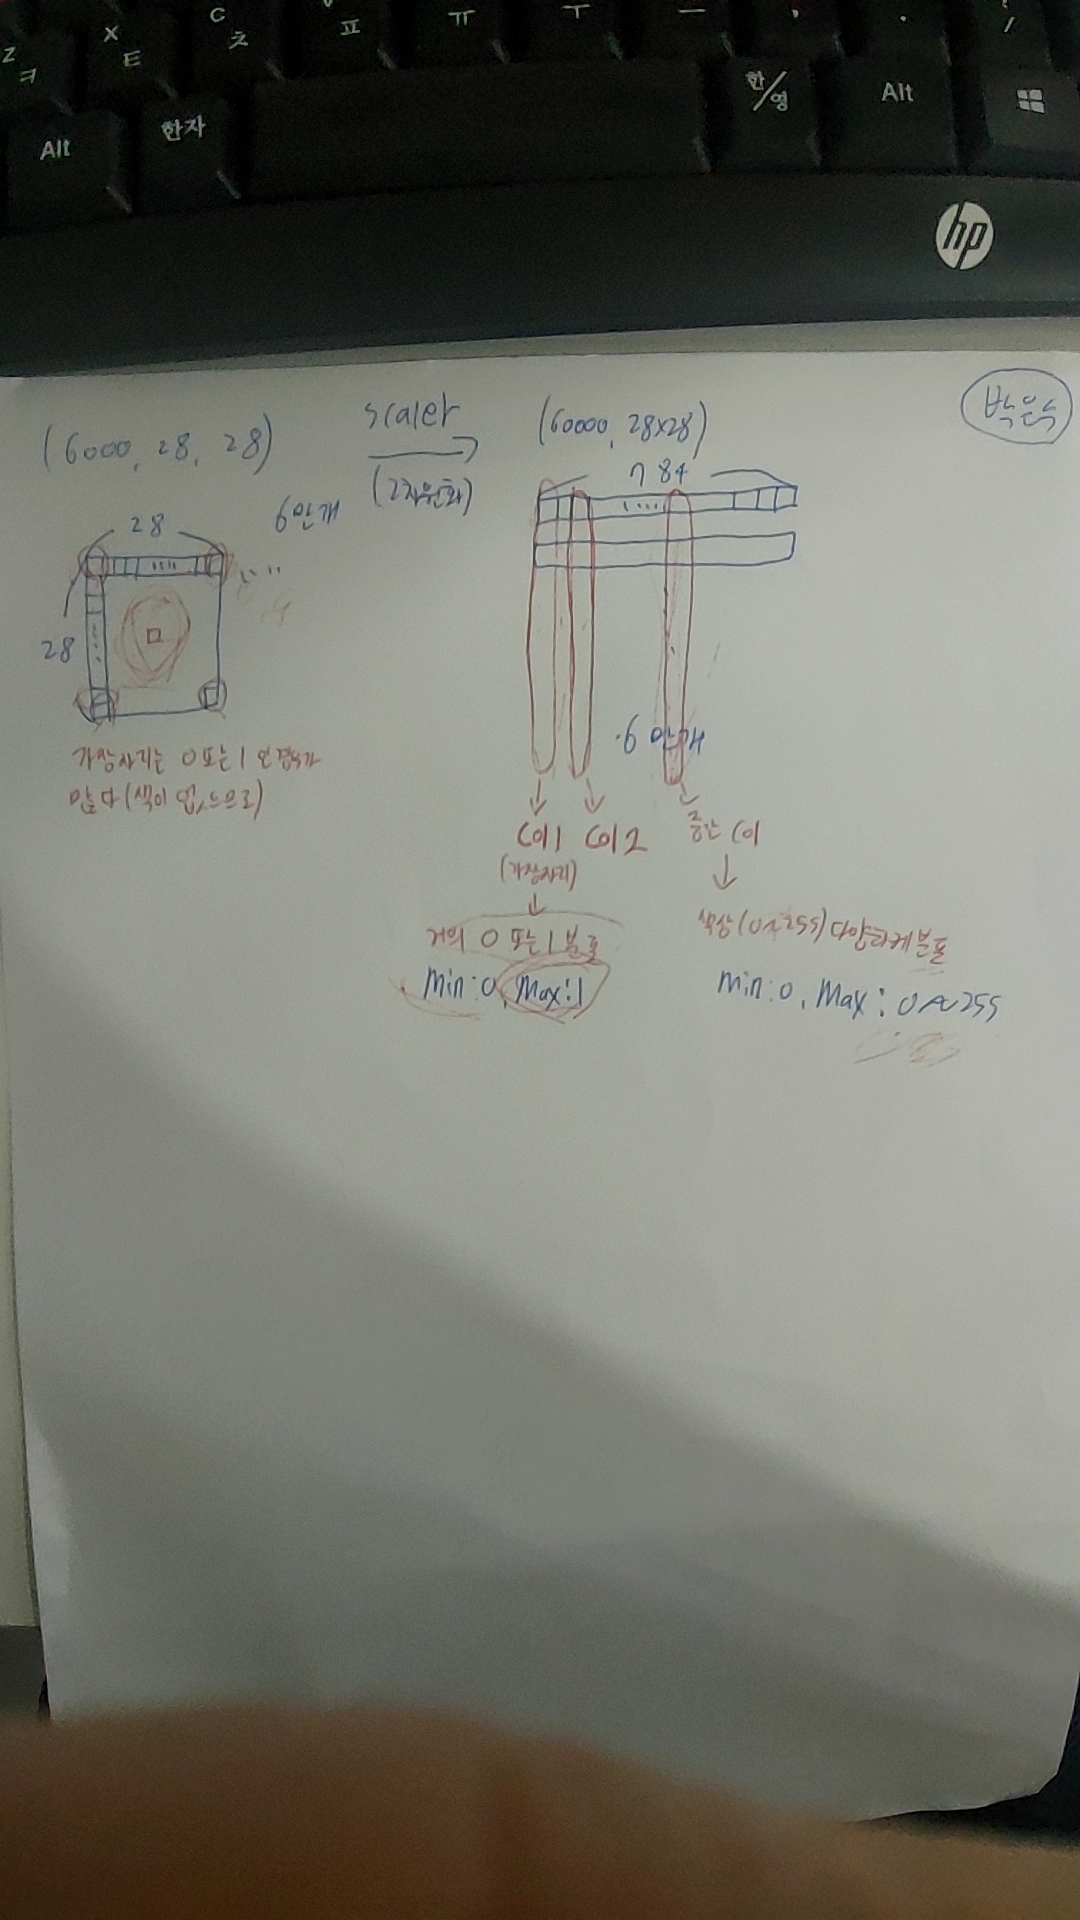 Z ㅋ
X ㅌ
C ㅊ
ㅍ
ㅠ
ㅜ
ㅡ
,
.
/
Alt
한자
한/영
Alt
hp
(6000, 28, 28)
scaler
(2차원화)
(60000, 28x28)
28
6만개
28
784
6만개
가장자리는 0 또는 1 인 경우가
많다 (색이 없으므로)
col1 col2 중간 col
(가장자리)
거의 0 또는 1 분포
Min:0, Max:1
색상(0~255) 다양하게 분포
Min:0, Max: 0~255